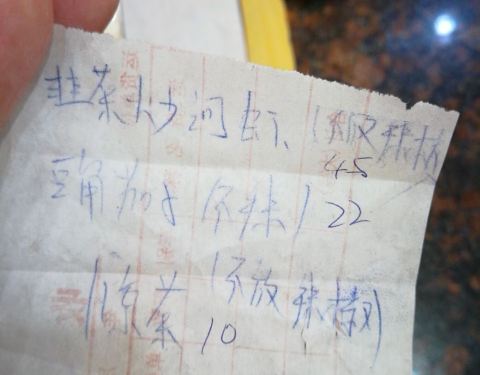 韭菜炒河虾、(不放辣椒
45
豆角茄子(不辣) 22
凉菜(不放辣椒)
10